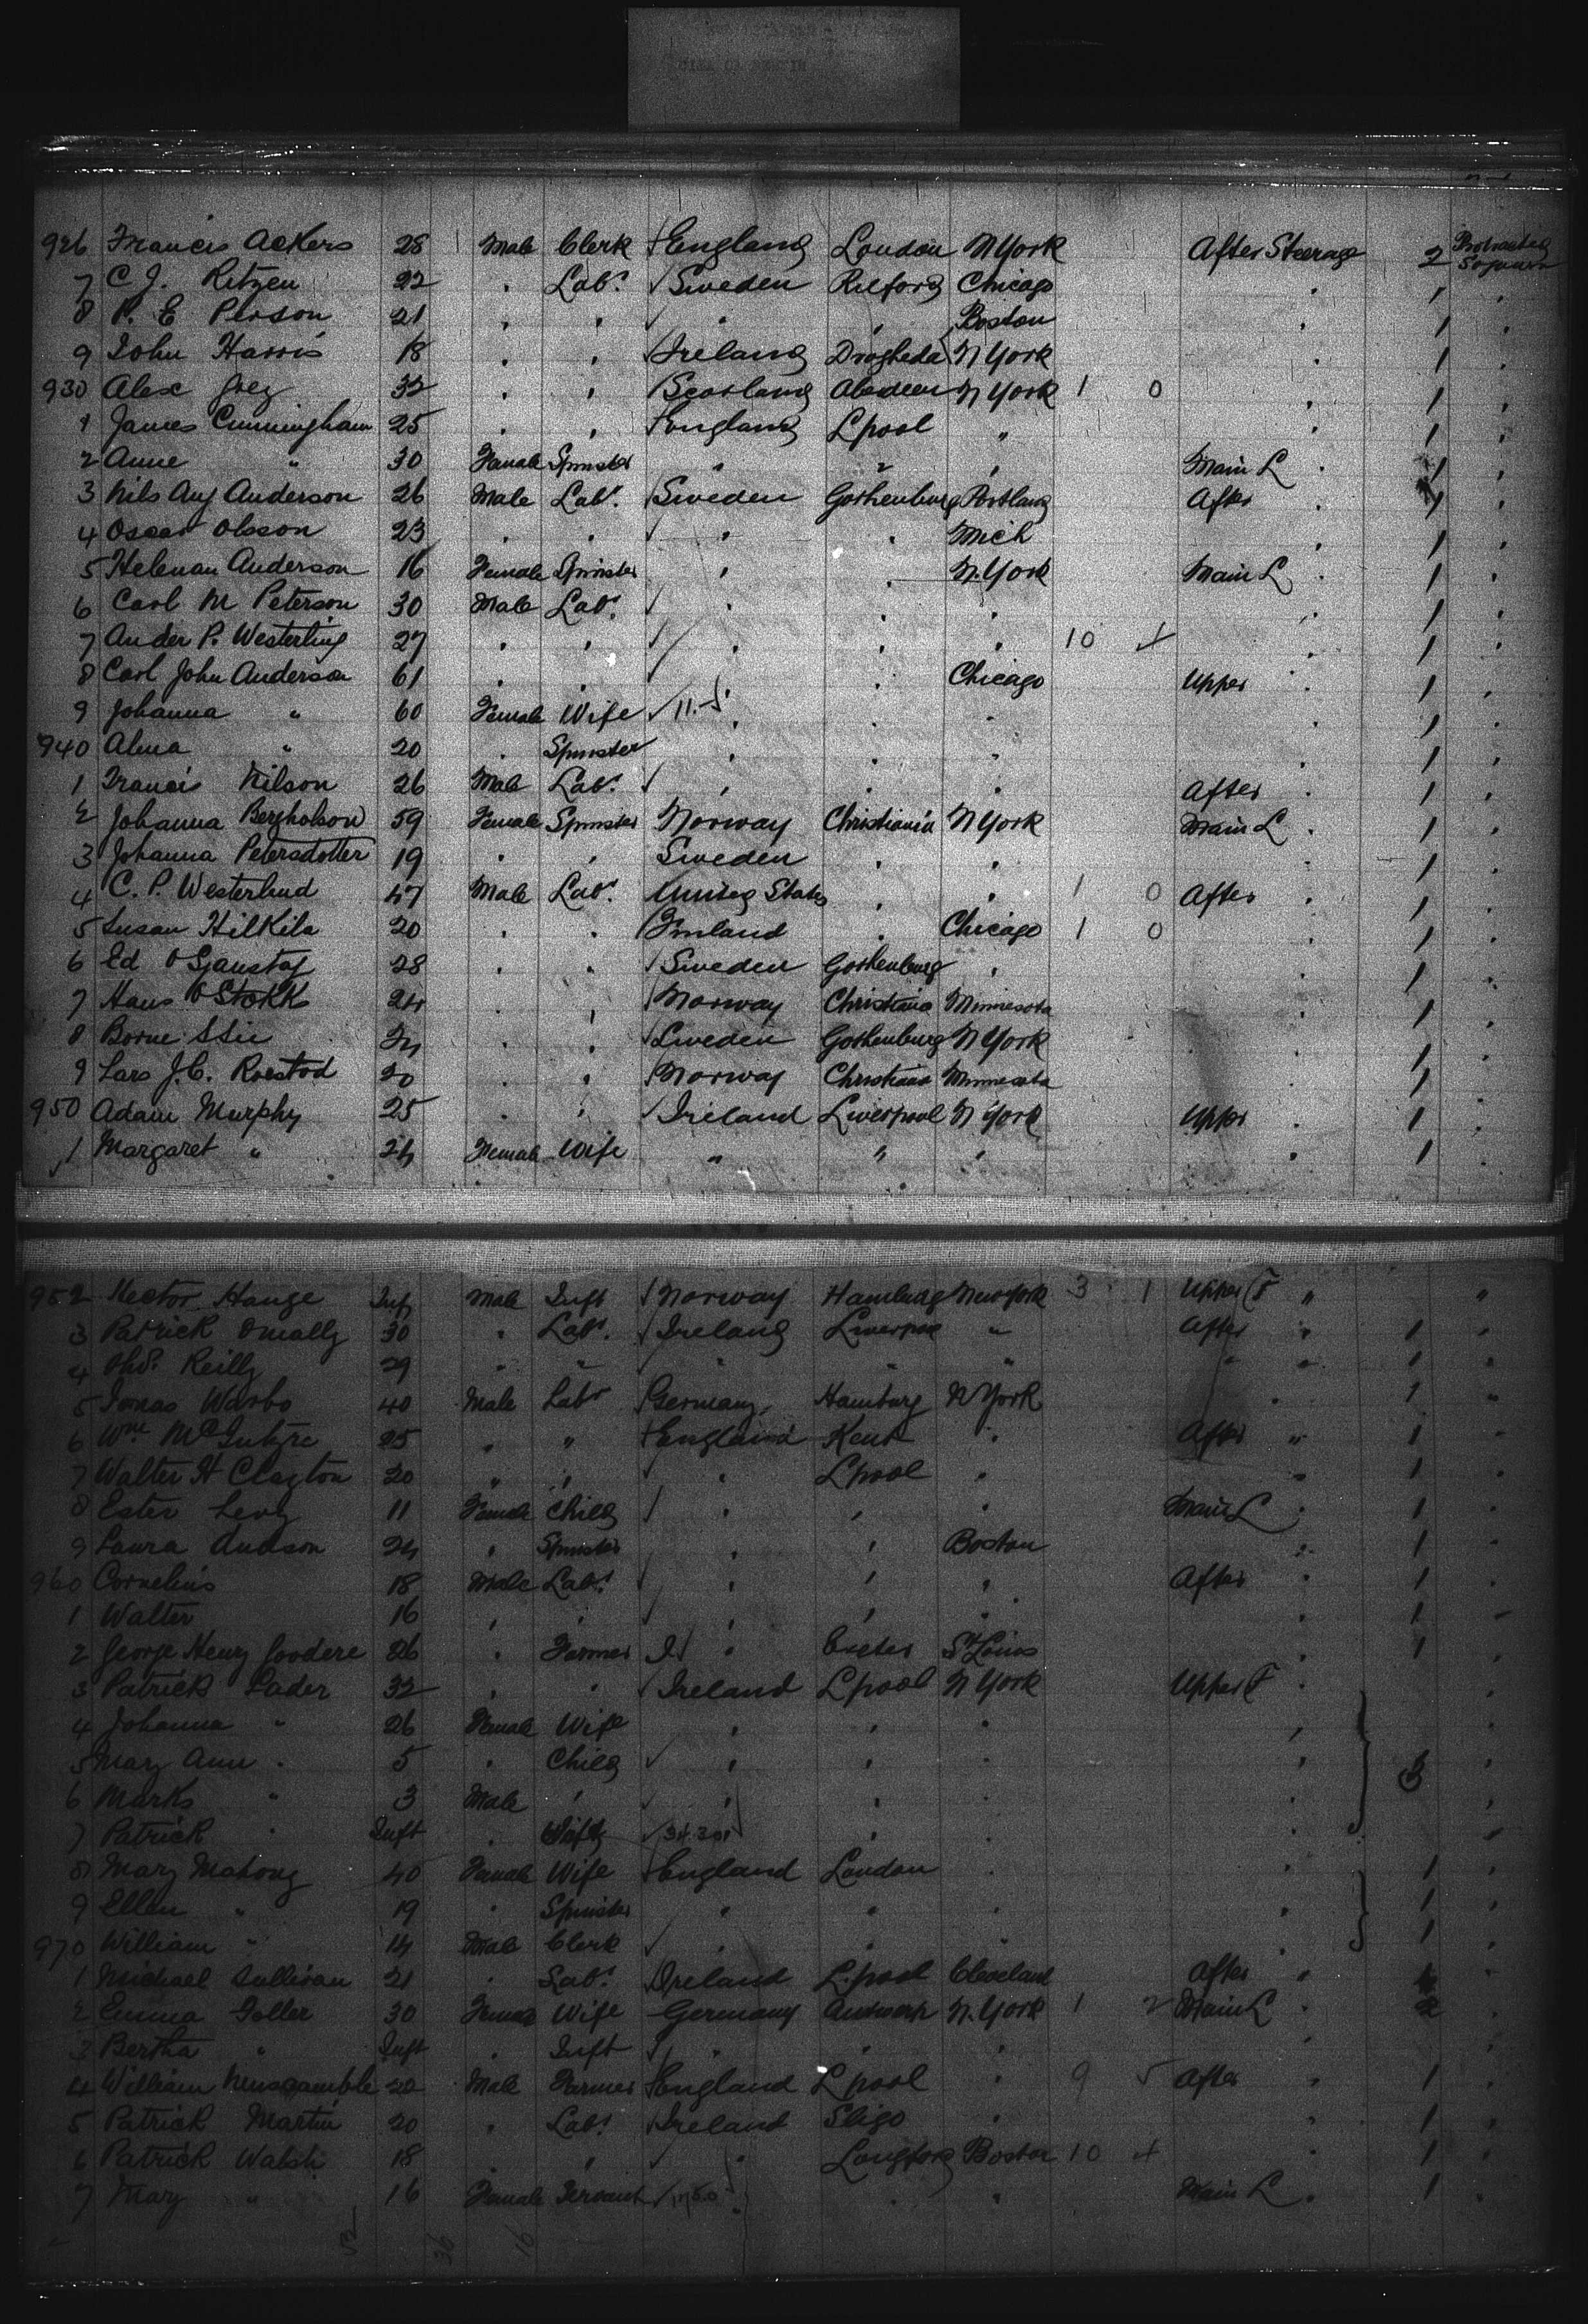 926 Francis Ackers 28 Male Clerk England London N York After Steerage 2 Protracted Sojourn
7 C J. Ritzen 22 " Lab.r Sweden Chicago
8 P. E Person 21 " " " " Boston
9 John Harris 18 " " Ireland Drogheda N York 1
930 Alex 32 " " Scotland Aberdeen N York 1 0 1
1 James Cunningham 25 " " England Lpool " 1
2 Anne " 30 Female Spinster " " " Main L 1
3 Nils Aug Anderson 26 Male Lab.r Sweden Gothenburg Portland After 1
4 Oscar Olsson 23 " " " " Mich 1
5 Helenan Anderson 16 Female Spinster " " N. York Main L 1
6 Carl M Peterson 30 Male Lab.r " " " 1
7 Ander P. Westerling 27 " " " " " 10 4 1
8 Carl John Anderson 61 " " " " Chicago Upper 1
9 Johanna " 60 Female Wife 11. " " " 1
940 Alma " 20 " Spinster " " " 1
1 Francis Nilson 26 Male Lab.r " " " After 1
2 Johanna Bergholson 59 Female Spinster Norway Christiania N York Main L 1
3 Johanna Petersdotter 19 " " Sweden " " 1
4 C. P. Westerlund 47 Male Lab.r United States " " 1 0 After 1
5 Susan Hilkila 20 " " Finland " Chicago 1 0 1
6 Ed 28 " " Sweden Gothenburg " 1
7 Hans O Stokk 24 " " Norway Christiana Minnesota 1
8 24 " " Sweden Gothenburg N York 1
9 Lars J.C. Roestod 20 " " Norway Christiana Minnesota 1
950 Adam Murphy 25 " " Ireland Liverpool N York Upper 1
1 Margaret " 24 Female Wife " " " " 1
952 Hector Hauge Inf Male Inft Norway Hamburg New York 3 1 Upper F " "
3 Patrick Omally 30 " Lab.r Ireland Liverpool " After " 1 "
4 Reilly 29 " " " " " " " 1 "
5 Jonas Warbo 40 Male Labr Germany Hamburg N York " 1 "
6 Wm McIntyre 25 " " England Kent " After " 1 "
7 Walter H Clayton 20 " " " Lpool " " 1 "
8 Ester Levy 11 Female Child " " " Main L " 1 "
9 Laura Hudson 24 " Spinster " " Boston " 1 "
960 Cornelius 18 Male Lab.r " " " After " 1 "
1 Walter 16 " " " " " " 1 "
2 George Henry Goodere 26 " Farmer " Exeter St Louis " 1 "
3 Patrick Lader 32 " " Ireland Lpool N York Upper F "
4 Johanna " 26 Female Wife " " " " "
5 Mary Ann " 5 " Child " " " " 3 "
6 Marks " 3 Male " " " " " "
7 Patrick " Inft " " " "
8 Mary Mahony 40 Female Wife England London " " 1 "
9 Ellen " 19 " Spinster " " " " 1 "
970 William " 14 Male Clerk " " " " 1 "
1 Michael Sullivan 21 " Lab.r Ireland L.pool Cleveland After "
2 Emma Foller 30 Female Wife Germany Antwerp N. York 1 2 Main L " 2 "
3 Bertha " Inft " Inft " " " " "
4 William 20 Male Farmer England Lpool " 9 5 After " 1 "
5 Patrick Martin 20 " Lab.r Ireland Sligo " " 1 "
6 Patrick Walsh 18 " " " Longford Boston 10 4 " 1 "
7 Mary " 16 Female Servant " " " Main L " 1 "